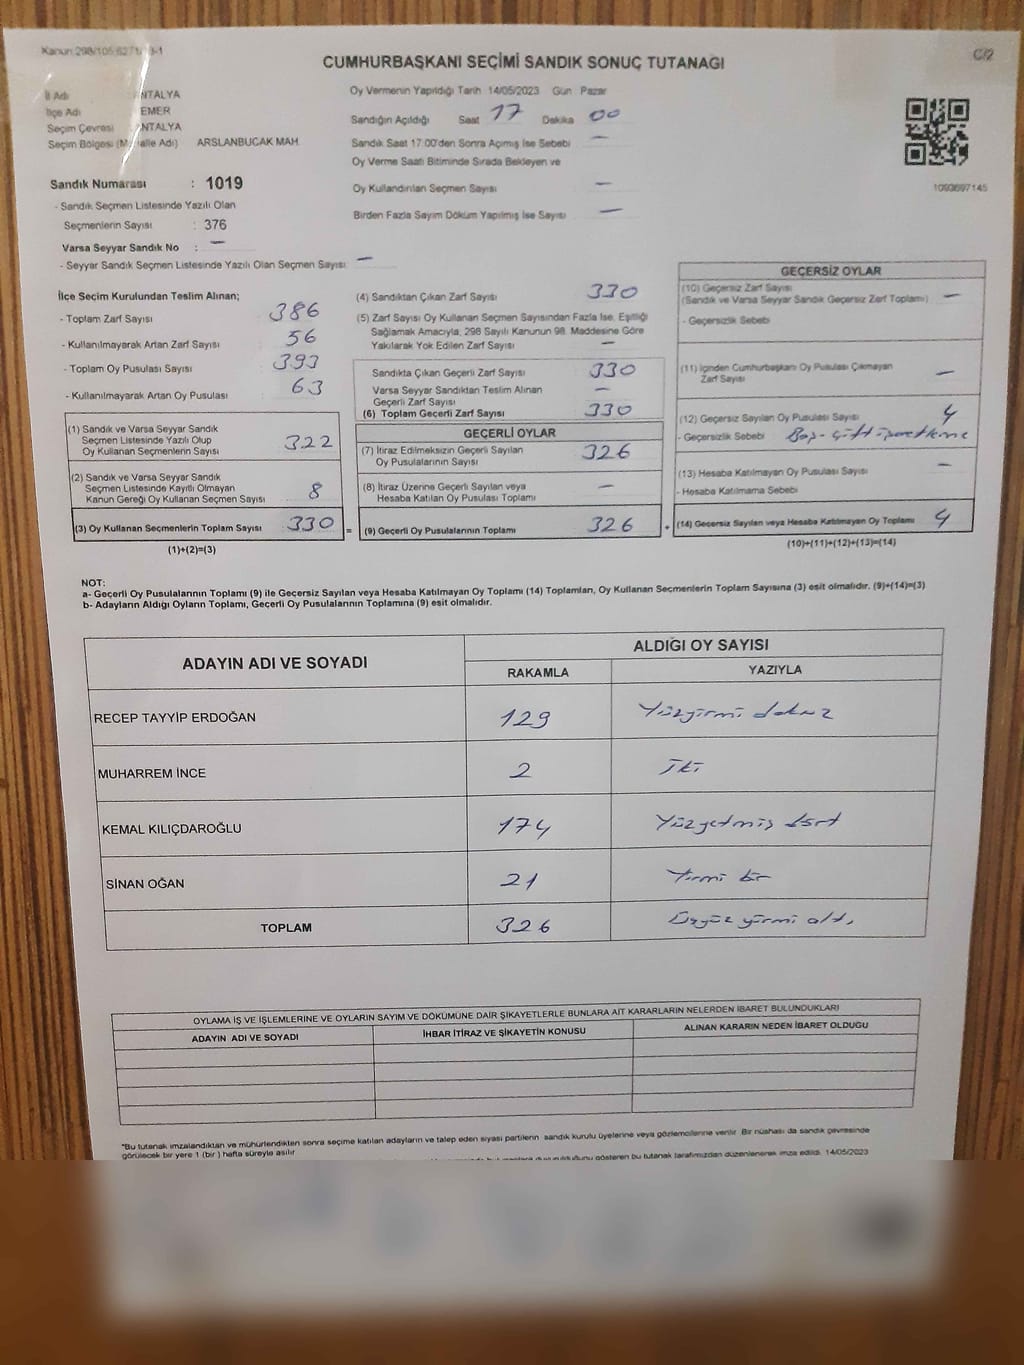 Kanun 298/105 6271/
C/2
CUMHURBAŞKANI SEÇİMİ SANDIK SONUÇ TUTANAĞI
İl Adı NTALYA
İlçe Adı EMER
Seçim Çevresi NTALYA
Seçim Bölgesi (M alle Adı) ARSLANBUCAK MAH.
Sandık Numarası : 1019
- Sandık Seçmen Listesinde Yazılı Olan
Seçmenlerin Sayısı : 376
Varsa Seyyar Sandık No : —
- Seyyar Sandık Seçmen Listesinde Yazılı Olan Seçmen Sayısı: —
Oy Vermenin Yapıldığı Tarih 14/05/2023 Gün Pazar
Sandığın Açıldığı Saat 17 Dakika 00
Sandık Saat 17:00'den Sonra Açımış İse Sebebi —
Oy Verme Saati Bitiminde Sırada Bekleyen ve
Oy Kullandırılan Seçmen Sayısı —
Birden Fazla Sayım Döküm Yapılmış İse Sayısı —
1093697145
İlçe Seçim Kurulundan Teslim Alınan;
- Toplam Zarf Sayısı 386
- Kullanılmayarak Artan Zarf Sayısı 56
- Toplam Oy Pusulası Sayısı 393
- Kullanılmayarak Artan Oy Pusulası 63
(1) Sandık ve Varsa Seyyar Sandık
Seçmen Listesinde Yazılı Olup
Oy Kullanan Seçmenlerin Sayısı 322
(2) Sandık ve Varsa Seyyar Sandık
Seçmen Listesinde Kayıtlı Olmayan
Kanun Gereği Oy Kullanan Seçmen Sayısı 8
(3) Oy Kullanan Seçmenlerin Toplam Sayısı 330 =
(1)+(2)=(3)
(4) Sandıktan Çıkan Zarf Sayısı 330
(5) Zarf Sayısı Oy Kullanan Seçmen Sayısından Fazla İse, Eşitliği
Sağlamak Amacıyla, 298 Sayılı Kanunun 98. Maddesine Göre
Yakılarak Yok Edilen Zarf Sayısı —
Sandıkta Çıkan Geçerli Zarf Sayısı 330
Varsa Seyyar Sandıktan Teslim Alınan
Geçerli Zarf Sayısı —
(6) Toplam Geçerli Zarf Sayısı 330
GEÇERLİ OYLAR
(7) İtiraz Edilmeksizin Geçerli Sayılan
Oy Pusulalarının Sayısı 326
(8) İtiraz Üzerine Geçerli Sayılan veya
Hesaba Katılan Oy Pusulası Toplamı —
(9) Geçerli Oy Pusulalarının Toplamı 326 +
GEÇERSİZ OYLAR
(10) Geçersiz Zarf Sayısı
(Sandık ve Varsa Seyyar Sandık Geçersiz Zarf Toplamı) —
- Geçersizlik Sebebi
(11) İçinden Cumhurbaşkanı Oy Pusulası Çıkmayan
Zarf Sayısı —
(12) Geçersiz Sayılan Oy Pusulası Sayısı 4
- Geçersizlik Sebebi Boş-çift işaretleme
(13) Hesaba Katılmayan Oy Pusulası Sayısı —
- Hesaba Katılmama Sebebi
(14) Geçersiz Sayılan veya Hesaba Katılmayan Oy Toplamı 4
(10)+(11)+(12)+(13)=(14)
NOT:
a- Geçerli Oy Pusulalarının Toplamı (9) ile Geçersiz Sayılan veya Hesaba Katılmayan Oy Toplamı (14) Toplamları, Oy Kullanan Seçmenlerin Toplam Sayısına (3) eşit olmalıdır. (9)+(14)=(3)
b- Adayların Aldığı Oyların Toplamı, Geçerli Oy Pusulalarının Toplamına (9) eşit olmalıdır.
ADAYIN ADI VE SOYADI ALDIĞI OY SAYISI
RAKAMLA YAZIYLA
RECEP TAYYİP ERDOĞAN 129 Yüzyirmi dokuz
MUHARREM İNCE 2 İki
KEMAL KILIÇDAROĞLU 174 Yüzyetmiş dört
SİNAN OĞAN 21 Yirmi bir
TOPLAM 326 Üçyüz yirmi altı
OYLAMA İŞ VE İŞLEMLERİNE VE OYLARIN SAYIM VE DÖKÜMÜNE DAİR ŞİKAYETLERLE BUNLARA AİT KARARLARIN NELERDEN İBARET BULUNDUKLARI
ADAYIN ADI VE SOYADI İHBAR İTİRAZ VE ŞİKAYETİN KONUSU ALINAN KARARIN NEDEN İBARET OLDUĞU
*Bu tutanak imzalandıktan ve mühürlendikten sonra seçime katılan adayların ve talep eden siyasi partilerin sandık kurulu üyelerine veya gözlemcilerine verilir. Bir nüshası da sandık çevresinde
görülecek bir yere 1 (bir) hafta süreyle asılır
gösteren bu tutanak tarafımızdan düzenlenerek imza edildi. 14/05/2023